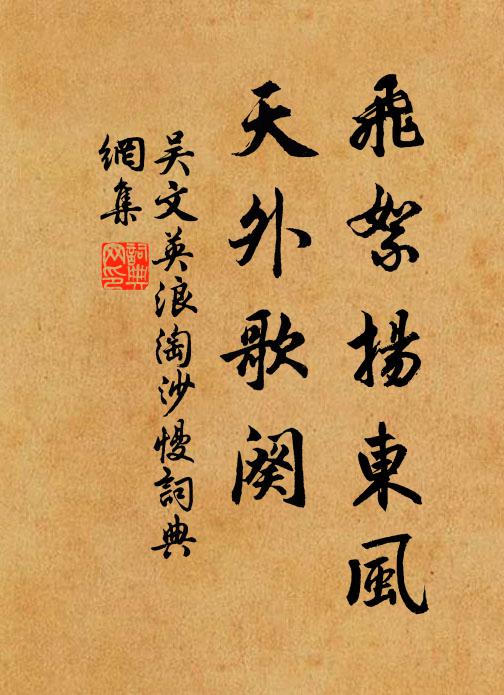 飛絮揚東風
天外歌闋
吳文英浪淘沙慢詞典
網集
詞典網印